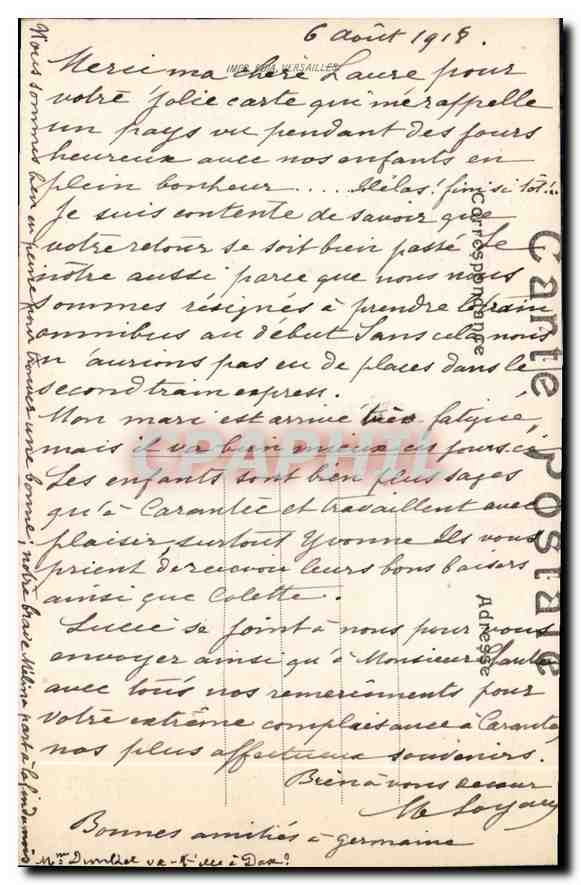 6 août 1918.
IMPR. EDIA, VERSAILLES
Merci ma chère Laure pour
votre jolie carte qui me rappelle
un pays vu pendant des jours
heureux avec nos enfants en
plein bonheur.... Hélas! fini si tôt!..
Je suis contente de savoir que
votre retour se soit bien passé Le
nôtre aussi parce que nous nous
sommes résignés à prendre le train
omnibus au début Sans cela nous
n'aurions pas eu de places dans le
second train express.
Mon mari est arrivé très fatigué,
mais il va bien mieux ces jours-ci
Les enfants sont bien plus sages
qu'à Carantec et travaillent avec
plaisir, surtout Yvonne Ils vous
prient de recevoir leurs bons baisers
ainsi que Colette.
Lucie se joint à nous pour vous
envoyer ainsi qu'à Monsieur
avec tous nos remerciments pour
votre extrême complaisance à Carantec
nos plus affectueux souvenirs.
Bien à vous de cœur
M
Bonnes amitiés à Germaine
Mme va-t-elle à Dax?
Nous sommes bien en peine pour trouver une bonne; notre brave Mélina part à la fin du mois
Carte Postale
Correspondance
Adresse
CPAPHIL